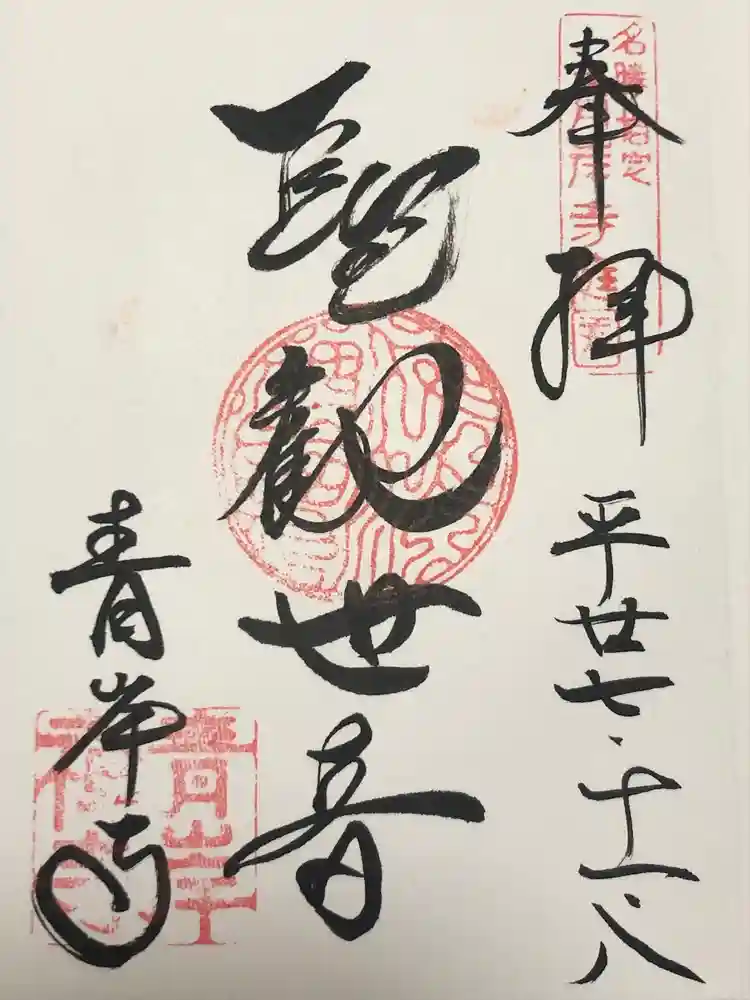 名勝指定
青岸寺庭園
奉拝
平廿七・十一・八
聖観世音
青岸寺